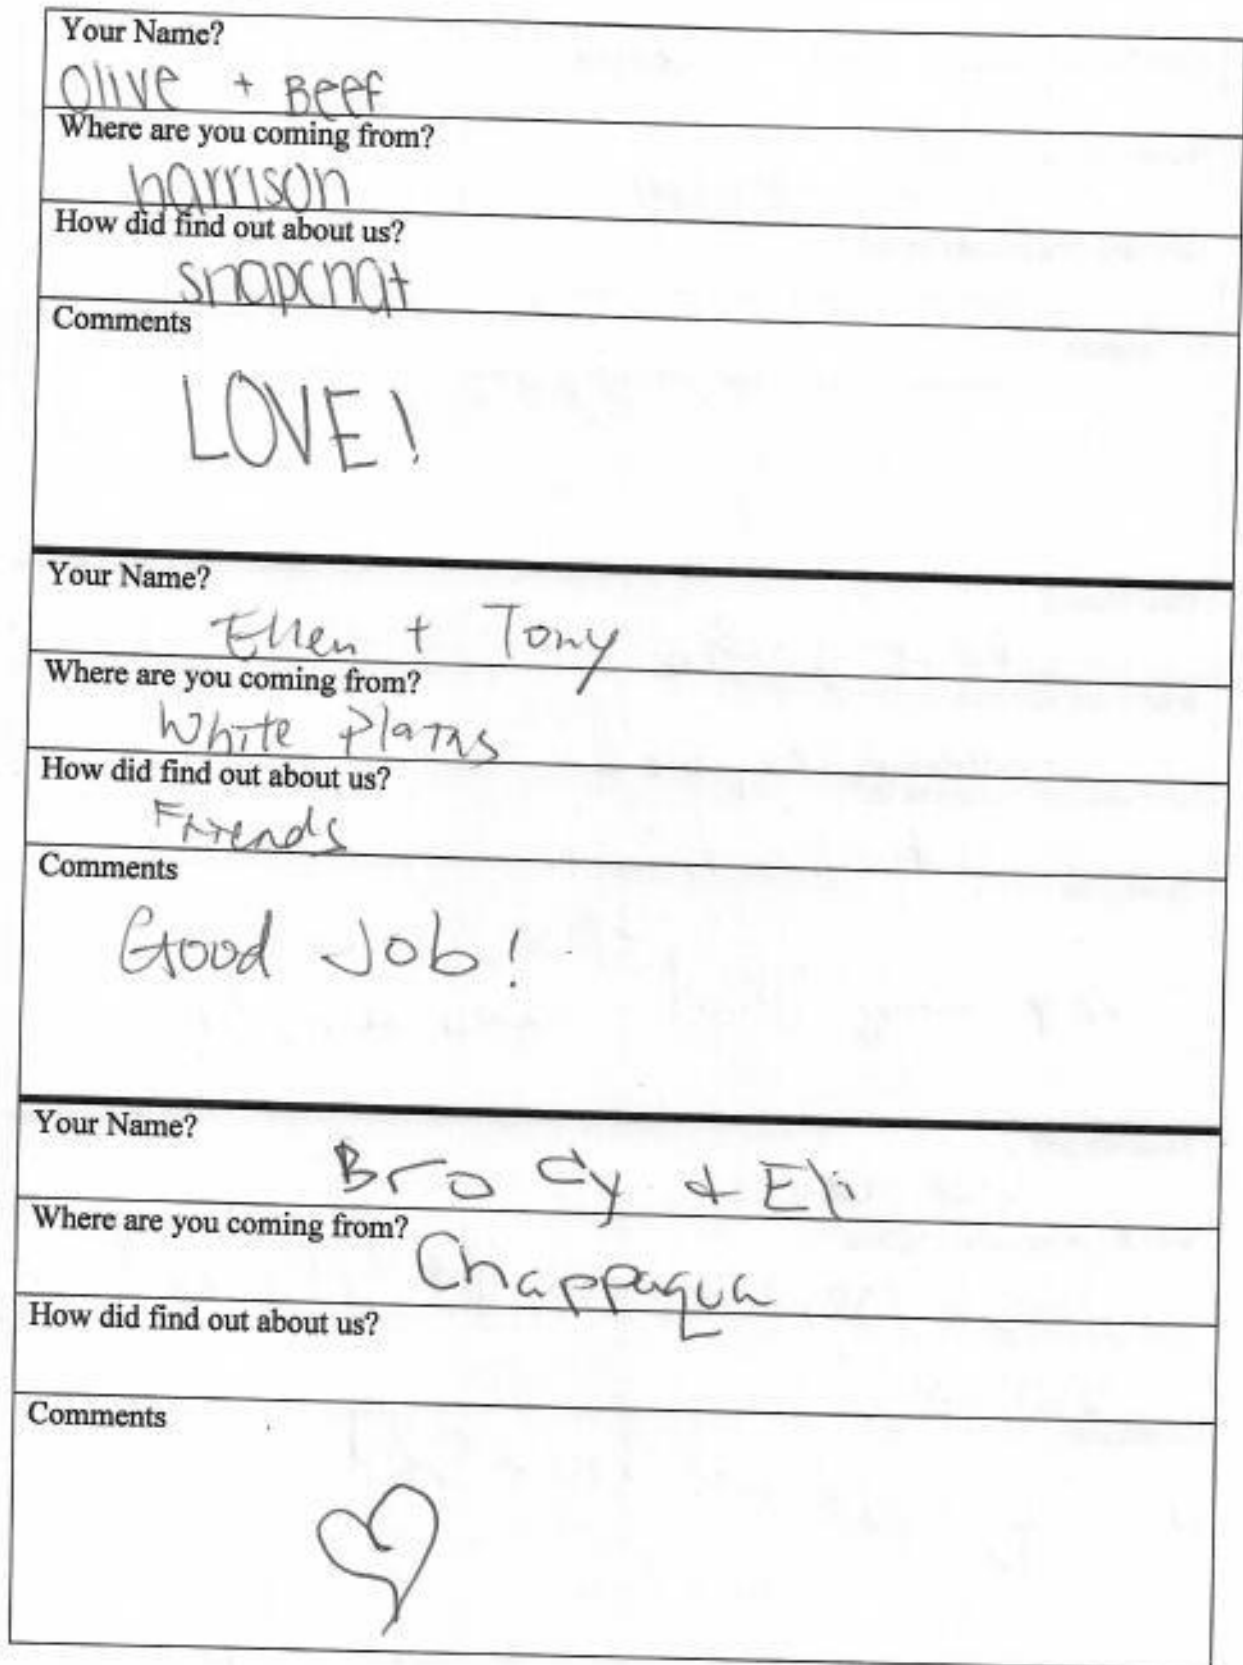 Your Name?
Olive + Beef
Where are you coming from?
harrison
How did find out about us?
snapchat
Comments
LOVE!
Your Name?
Ellen + Tony
Where are you coming from?
White Plains
How did find out about us?
Friends
Comments
Good Job!
Your Name?
Brody & Eli
Where are you coming from?
Chappaqua
How did find out about us?
Comments